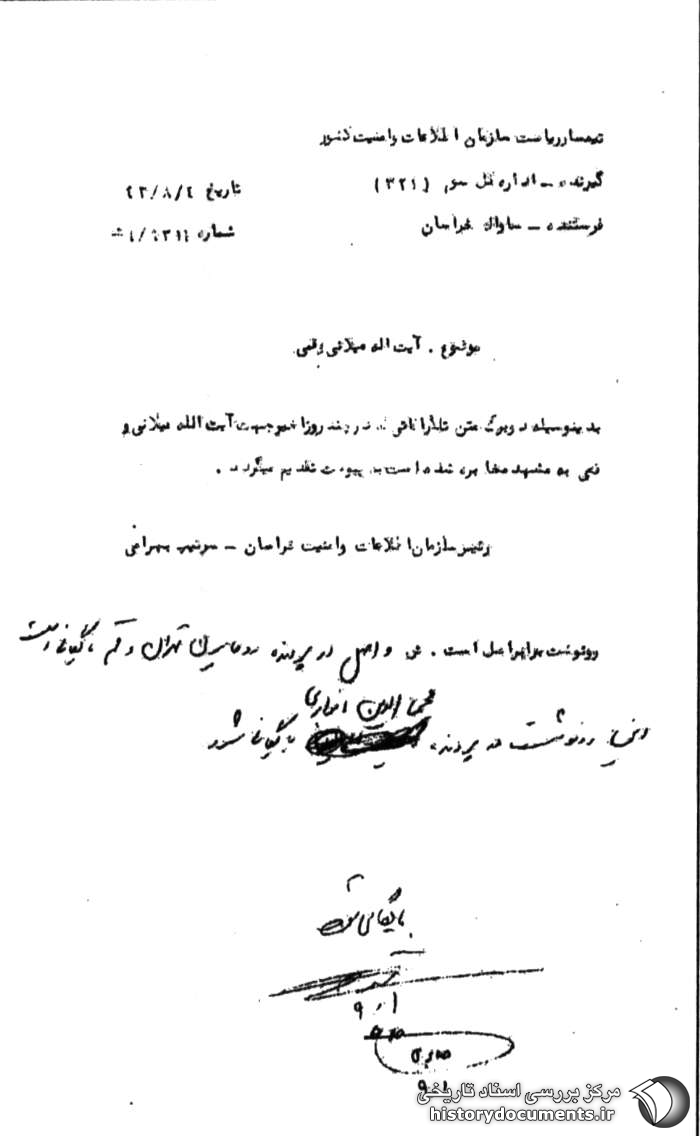 تیمسار ریاست سازمان اطلاعات و امنیت کشور
گیرنده – اداره کل سوم (۳۲۱)
تاریخ ۴۳/۸/۴
فرستنده – ساواک خراسان
شماره
موضوع . آیت اله میلانی و قمی
بدینوسیله دو برگ متن تلگرافاتی که در چند روز اخیر جهت آیت الله میلانی و
قمی به مشهد مخابره شده است به پیوست تقدیم میگردد .
رئیس سازمان اطلاعات و امنیت خراسان – سرتیپ بهرامی
رونوشت برابر اصل است . اصل در پرونده روحانیون تهران و قم بایگانی است
محی الدین انواری
این رونوشت در پرونده بایگانی شود
بایگانی شود
۹/۱
۹/۱
مرکز بررسی اسناد تاریخی
historydocuments.ir